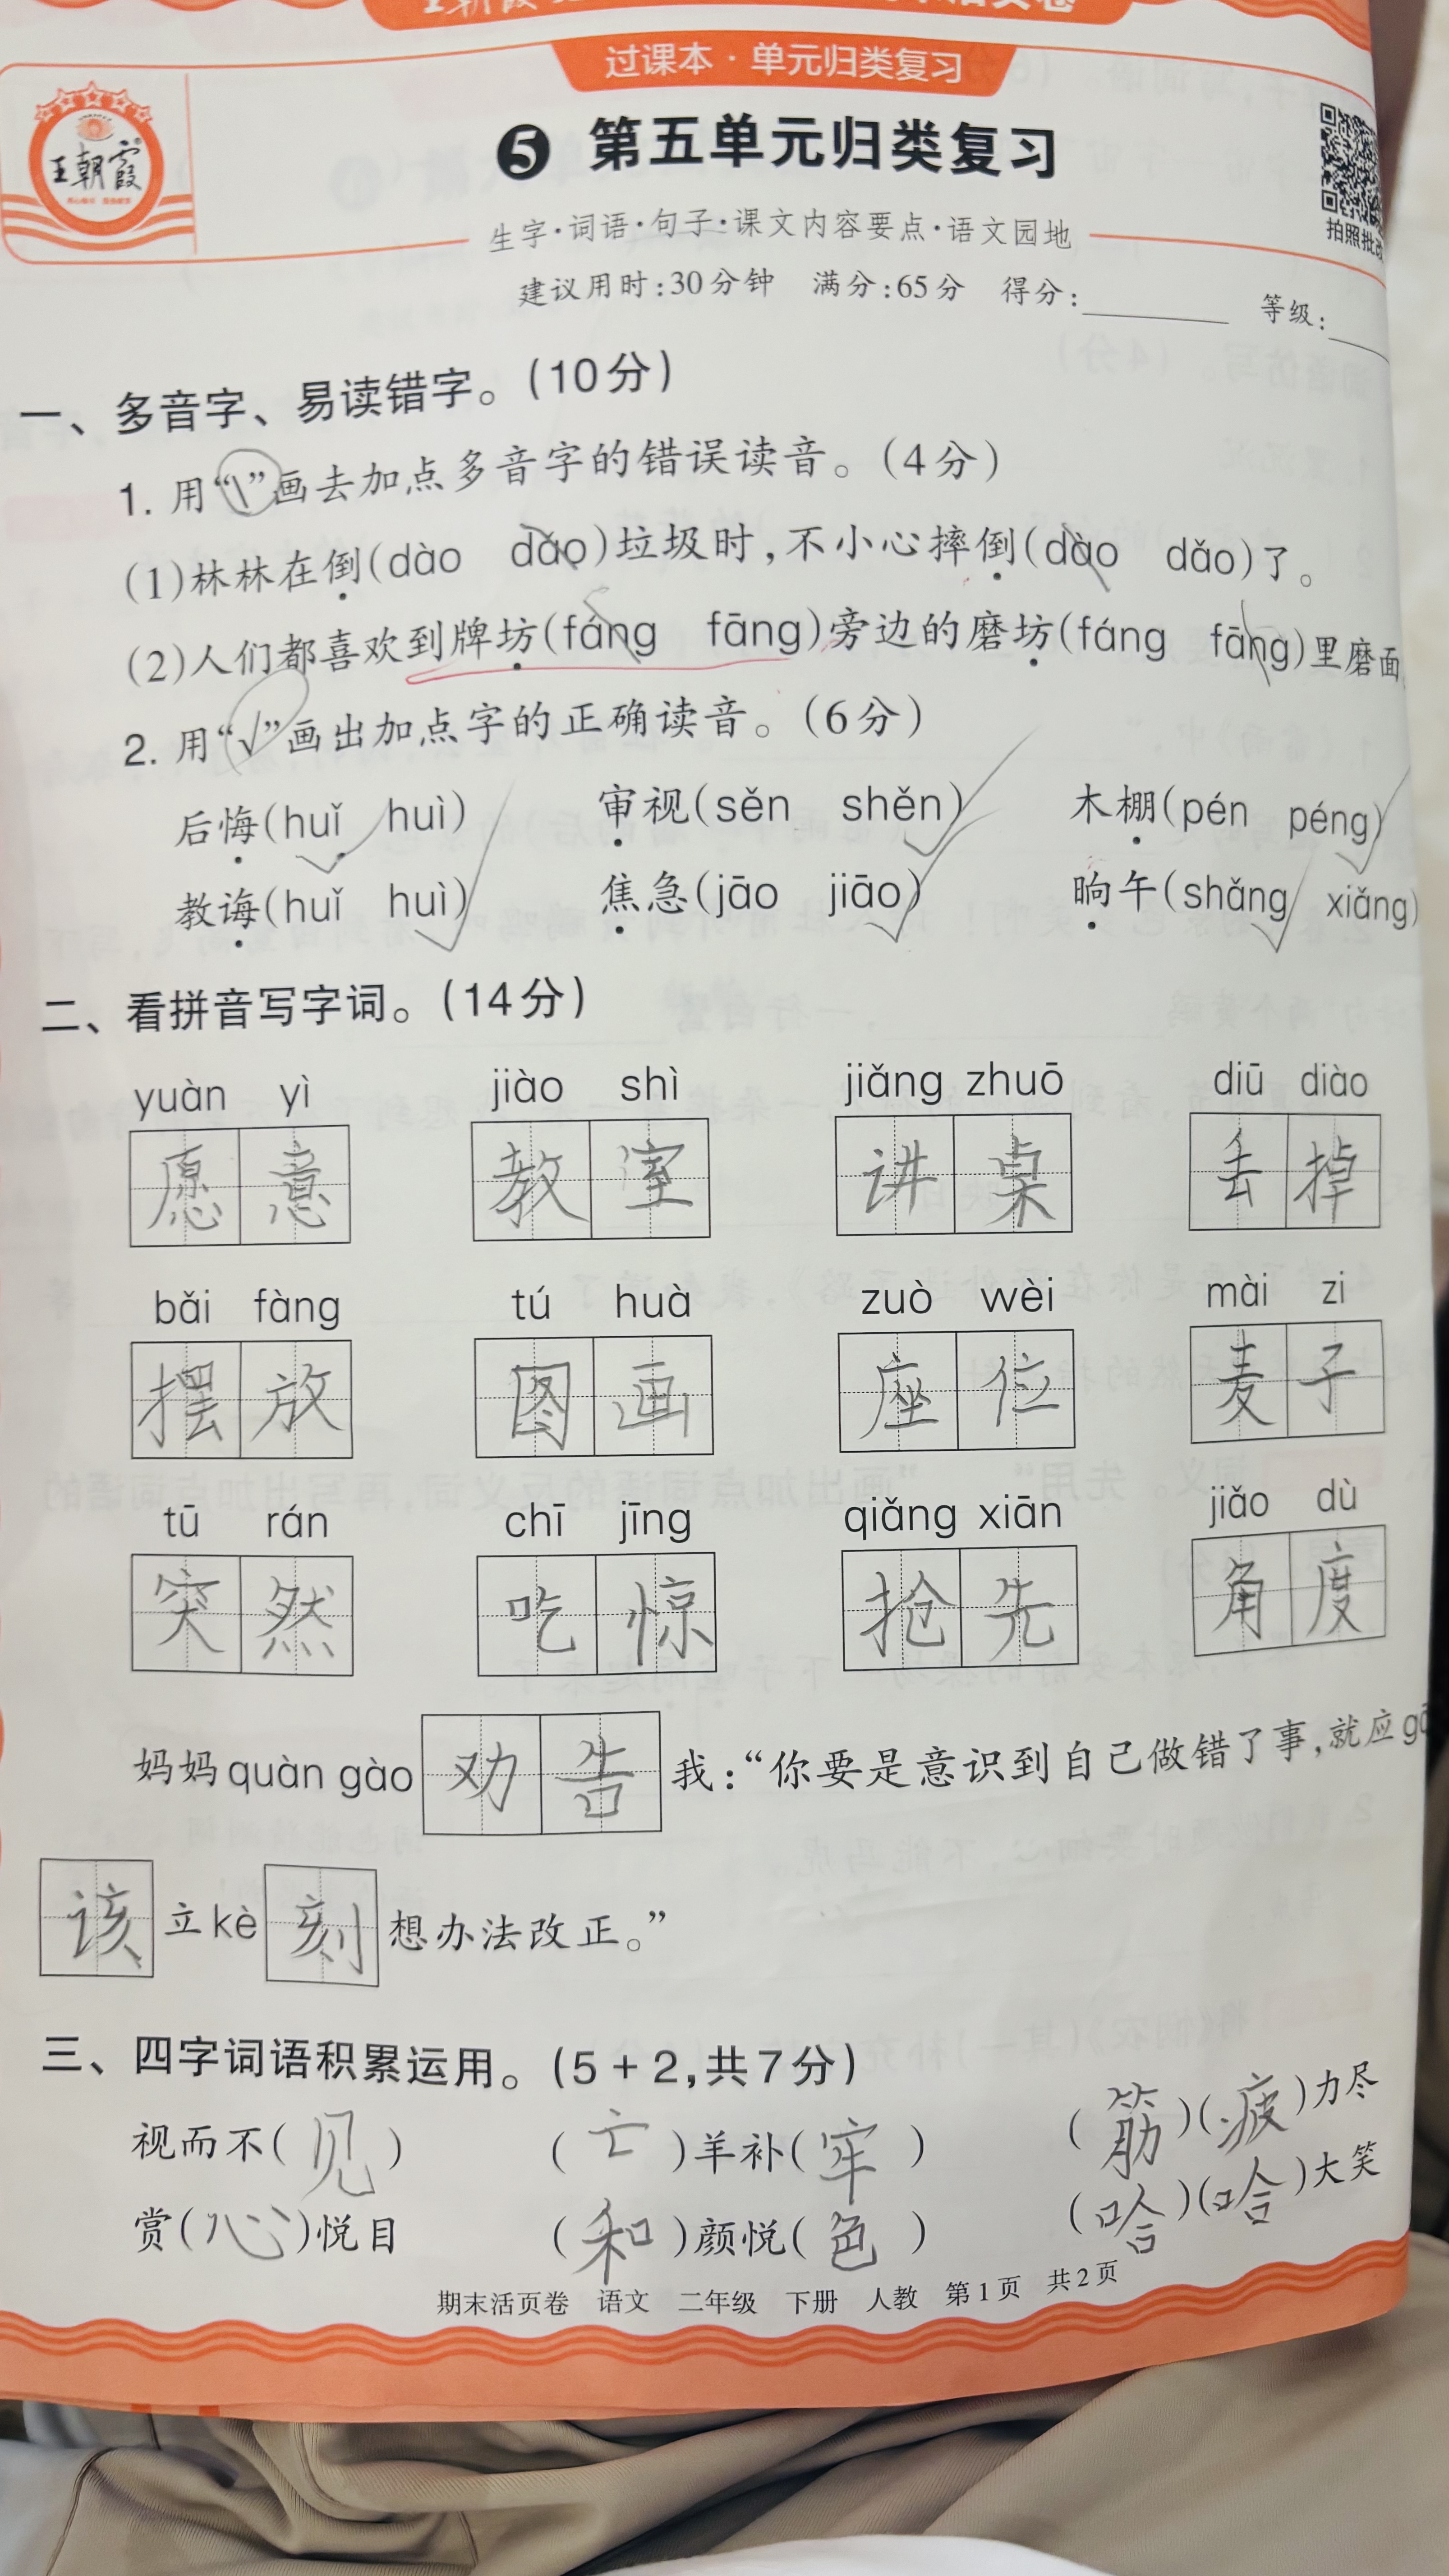 过课本·单元归类复习
王朝霞
5 第五单元归类复习
拍照批改
生字·词语·句子·课文内容要点·语文园地
建议用时:30分钟 满分:65分 得分: 等级:
一、多音字、易读错字。(10分)
1. 用“\”画去加点多音字的错误读音。(4分)
(1)林林在倒(dào dǎo)垃圾时,不小心摔倒(dào dǎo)了。
(2)人们都喜欢到牌坊(fáng fāng)旁边的磨坊(fáng fāng)里磨面
2. 用“√”画出加点字的正确读音。(6分)
后悔(huǐ huì) 审视(sěn shěn) 木棚(pén péng)
教诲(huǐ huì) 焦急(jāo jiāo) 晌午(shǎng xiǎng)
二、看拼音写字词。(14分)
yuàn yì jiào shì jiǎng zhuō diū diào
愿意 教室 讲桌 丢掉
bǎi fàng tú huà zuò wèi mài zi
摆放 图画 座位 麦子
tū rán chī jīng qiǎng xiān jiǎo dù
突然 吃惊 抢先 角度
妈妈quàn gào劝告我:“你要是意识到自己做错了事,就应
该立kè刻想办法改正。”
三、四字词语积累运用。(5+2,共7分)
视而不(见) (亡)羊补(牢) (筋)(疲)力尽
赏(心)悦目 (和)颜悦(色) (哈)(哈)大笑
期末活页卷 语文 二年级 下册 人教 第1页 共2页